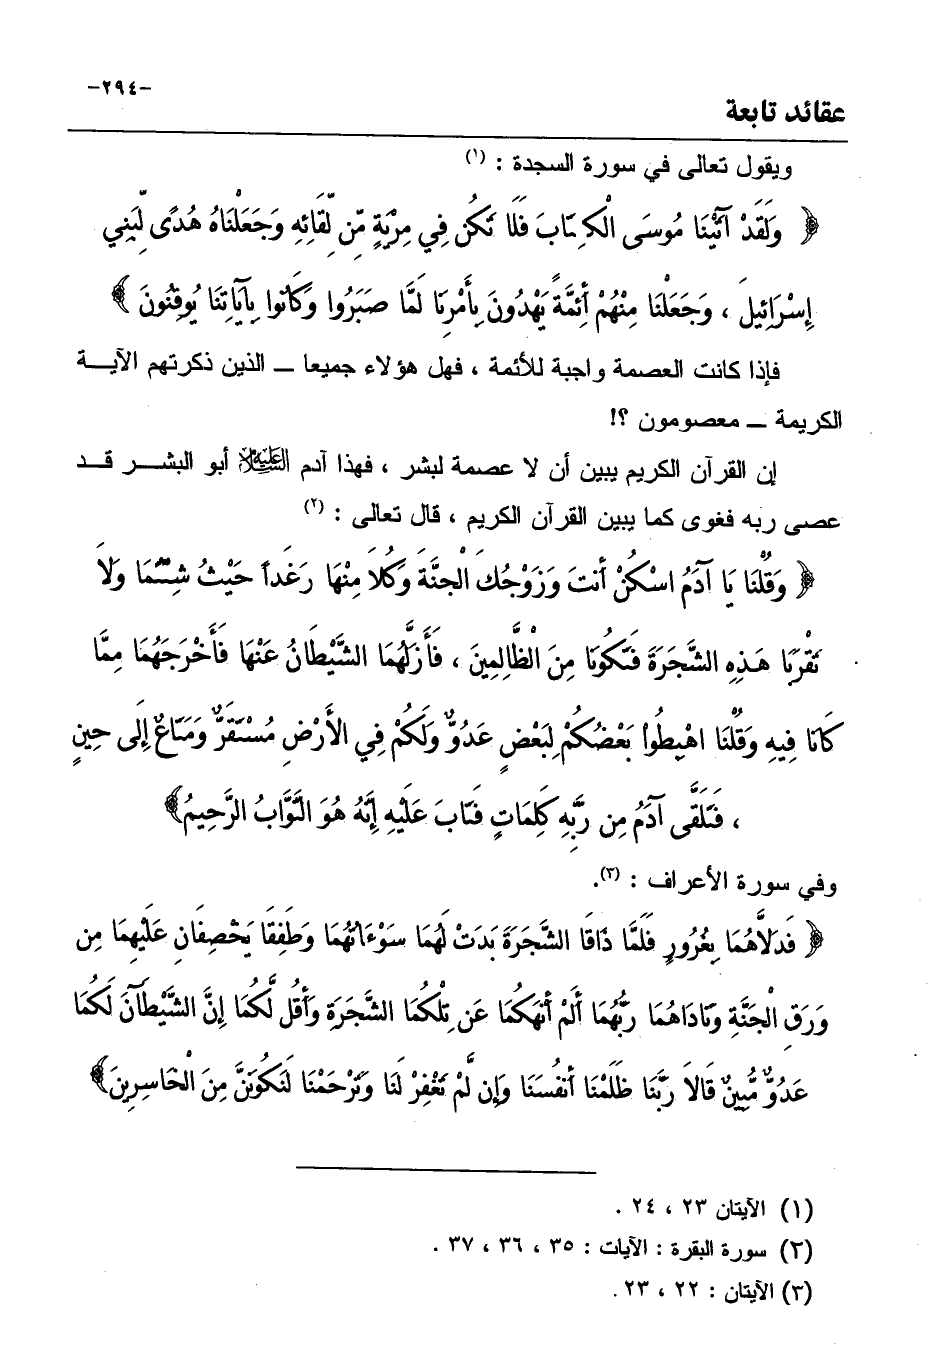 -٢٩٤-
عقائد تابعة
ويقول تعالى في سورة السجدة : (١)
﴿ وَلَقَدْ آتَيْنَا مُوسَى الْكِتَابَ فَلَا تَكُن فِي مِرْيَةٍ مِّن لِّقَائِهِ وَجَعَلْنَاهُ هُدًى لِّبَنِي
إِسْرَائِيلَ ، وَجَعَلْنَا مِنْهُمْ أَئِمَّةً يَهْدُونَ بِأَمْرِنَا لَمَّا صَبَرُوا وَكَانُوا بِآيَاتِنَا يُوقِنُونَ ﴾
فإذا كانت العصمة واجبة للأئمة ، فهل هؤلاء جميعا ــ الذين ذكرتهم الآيــة
الكريمة ــ معصومون ؟!
إن القرآن الكريم يبين أن لا عصمة لبشر ، فهذا آدم عليه السلام أبو البشــر قــد
عصى ربه فغوى كما يبين القرآن الكريم ، قال تعالى : (٢)
﴿ وَقُلْنَا يَا آدَمُ اسْكُنْ أَنتَ وَزَوْجُكَ الْجَنَّةَ وَكُلاَ مِنْهَا رَغَداً حَيْثُ شِئْتُمَا وَلاَ
تَقْرَبَا هَـذِهِ الشَّجَرَةَ فَتَكُونَا مِنَ الْظَّالِمِينَ ، فَأَزَلَّهُمَا الشَّيْطَانُ عَنْهَا فَأَخْرَجَهُمَا مِمَّا
كَانَا فِيهِ وَقُلْنَا اهْبِطُواْ بَعْضُكُمْ لِبَعْضٍ عَدُوٌّ وَلَكُمْ فِي الأَرْضِ مُسْتَقَرٌّ وَمَتَاعٌ إِلَى حِينٍ
، فَتَلَقَّى آدَمُ مِن رَّبِّهِ كَلِمَاتٍ فَتَابَ عَلَيْهِ إِنَّهُ هُوَ التَّوَّابُ الرَّحِيمُ﴾
وفي سورة الأعراف : (٣).
﴿ فَدَلاَّهُمَا بِغُرُورٍ فَلَمَّا ذَاقَا الشَّجَرَةَ بَدَتْ لَهُمَا سَوْءَاتُهُمَا وَطَفِقَا يَخْصِفَانِ عَلَيْهِمَا مِن
وَرَقِ الْجَنَّةِ وَنَادَاهُمَا رَبُّهُمَا أَلَمْ أَنْهَكُمَا عَن تِلْكُمَا الشَّجَرَةِ وَأَقُل لَّكُمَا إِنَّ الشَّيْطَآنَ لَكُمَا
عَدُوٌّ مُّبِينٌ قَالاَ رَبَّنَا ظَلَمْنَا أَنفُسَنَا وَإِن لَّمْ تَغْفِرْ لَنَا وَتَرْحَمْنَا لَنَكُونَنَّ مِنَ الْخَاسِرِينَ﴾
(١) الآيتان ٢٣ ، ٢٤ .
(٢) سورة البقرة : الآيات : ٣٥ ، ٣٦ ، ٣٧ .
(٣) الآيتان : ٢٢ ، ٢٣ .